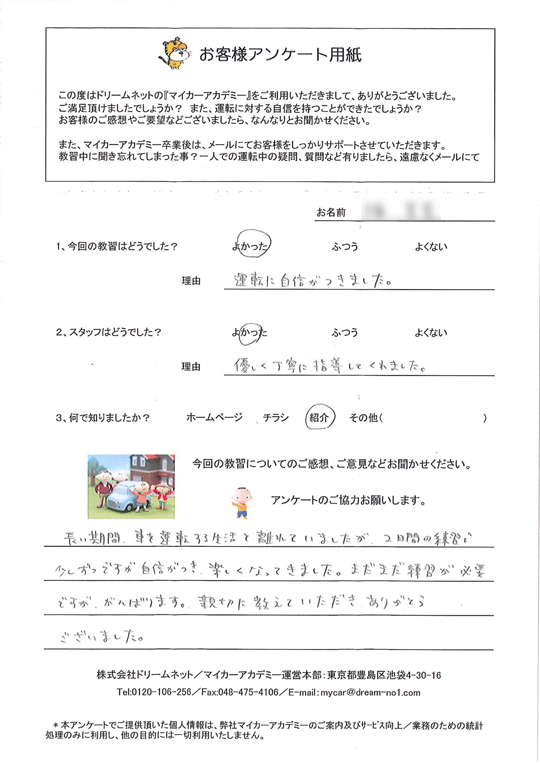 お客様アンケート用紙
この度はドリームネットの『マイカーアカデミー』をご利用いただきまして、ありがとうございました。
ご満足頂けましたでしょうか？ また、運転に対する自信を持つことができたでしょうか？
お客様のご感想やご要望などございましたら、なんなりとお聞かせください。
また、マイカーアカデミー卒業後は、メールにてお客様をしっかりサポートさせていただきます。
教習中に聞き忘れてしまった事？一人での運転中の疑問、質問など有りましたら、遠慮なくメールにて
お名前
1、今回の教習はどうでした？ よかった ふつう よくない
理由 運転に自信がつきました。
2、スタッフはどうでした？ よかった ふつう よくない
理由 優しく丁寧に指導してくれました。
3、何で知りましたか？ ホームページ チラシ 紹介 その他( )
今回の教習についてのご感想、ご意見などお聞かせください。
アンケートのご協力お願いします。
長い期間、車を運転する生活と離れていましたが、2日間の練習で
少しずつですが自信がつき、楽しくなってきました。まだまだ練習が必要
ですが、がんばります。親切に教えていただきありがとう
ございました。
株式会社ドリームネット／マイカーアカデミー運営本部：東京都豊島区池袋4-30-16
Tel:0120-106-256／Fax:048-475-4106／E-mail:mycar@dream-no1.com
＊本アンケートでご提供頂いた個人情報は、弊社マイカーアカデミーのご案内及びサービス向上／業務のための統計
処理のみに利用し、他の目的には一切利用いたしません。